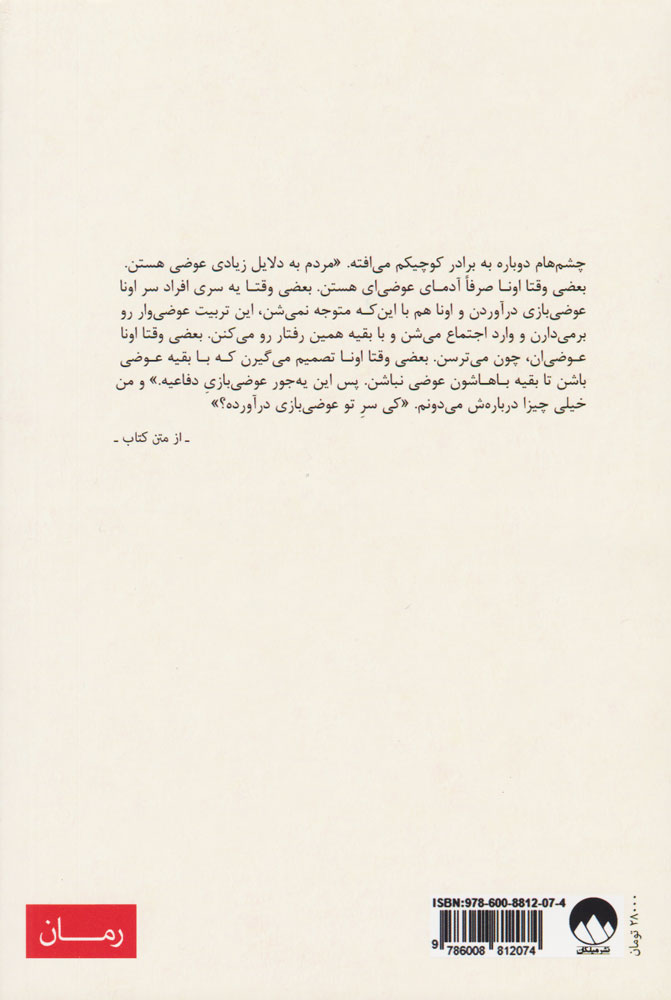 چشم‌هام دوباره به برادر کوچیکم می‌افته. «مردم به دلایل زیادی عوضی هستن.
بعضی وقتا اونا صرفاً آدمای عوضی‌ای هستن. بعضی وقتا یه سری افراد سر اونا
عوضی‌بازی درآوردن و اونا هم با این‌که متوجه نمی‌شن، این تربیت عوضی‌وار رو
برمی‌دارن و وارد اجتماع می‌شن و با بقیه همین رفتار رو می‌کنن. بعضی وقتا اونا
عوضی‌ان، چون می‌ترسن. بعضی وقتا اونا تصمیم می‌گیرن که با بقیه عوضی
باشن تا بقیه باهاشون عوضی نباشن. پس این یه‌جور عوضی‌بازیِ دفاعیه.» و من
خیلی چیزا درباره‌ش می‌دونم. «کی سرِ تو عوضی‌بازی درآورده؟»
ـ از متن کتاب ـ
رمان
ISBN:978-600-8812-07-4
9 786008 812074
نشر میلکان
۲۸۰۰۰ تومان